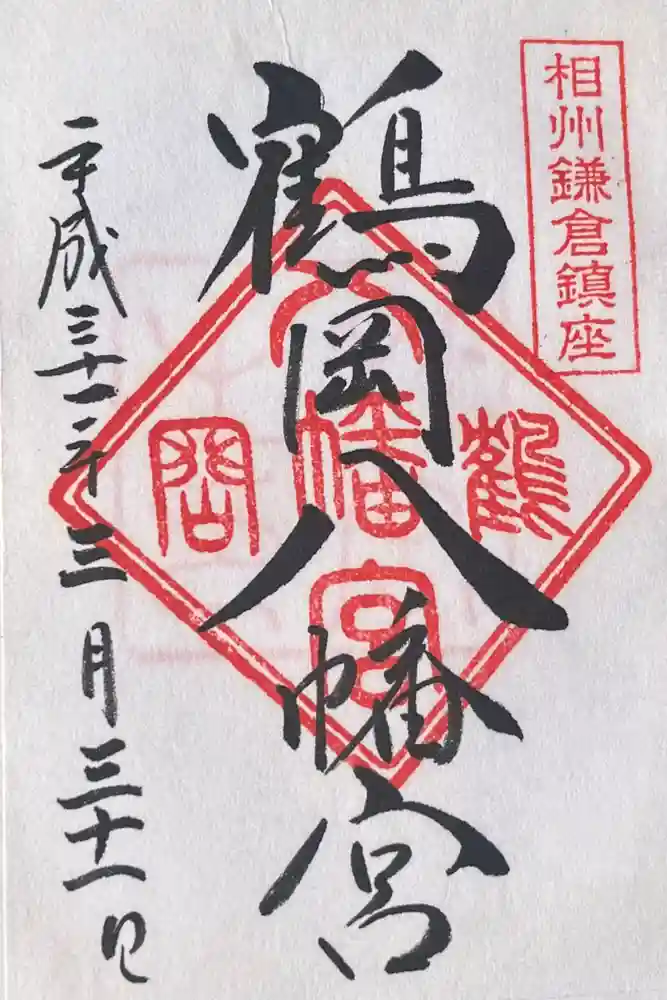 相州鎌倉鎮座
鶴岡八幡宮
鶴
岡
八
幡
宮
平成三十一年三月三十一日